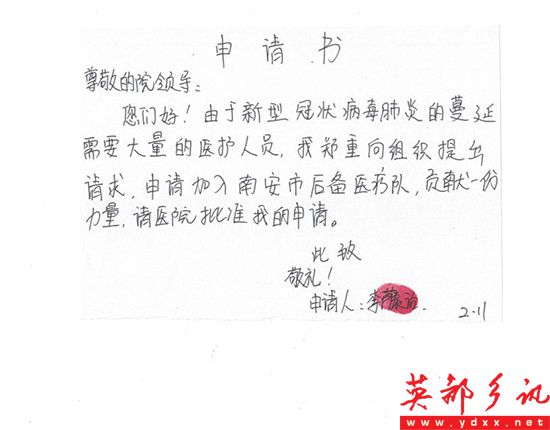 申请书
尊敬的院领导：
您们好！由于新型冠状病毒肺炎的蔓延
需要大量的医护人员，我郑重向组织提出
请求，申请加入南安市后备医疗队，贡献一份
力量，请医院批准我的申请。
此致
敬礼！
申请人：李
2.11
英都乡讯
www.ydxx.net